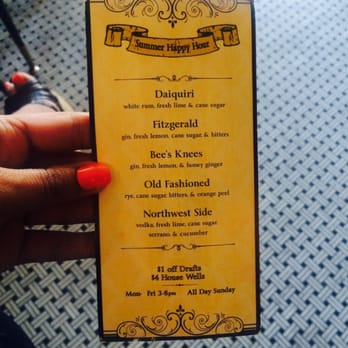 Summer Happy Hour
Daiquiri
white rum, fresh lime & cane sugar
Fitzgerald
gin, fresh lemon, cane sugar & bitters
Bee's Knees
gin, fresh lemon, & honey ginger
Old Fashioned
rye, cane sugar, bitters, & orange peel
Northwest Side
vodka, fresh lime, cane sugar,
serrano, & cucumber
$1 off Drafts
$4 House Wells
Mon- Fri 3-6pm All Day Sunday